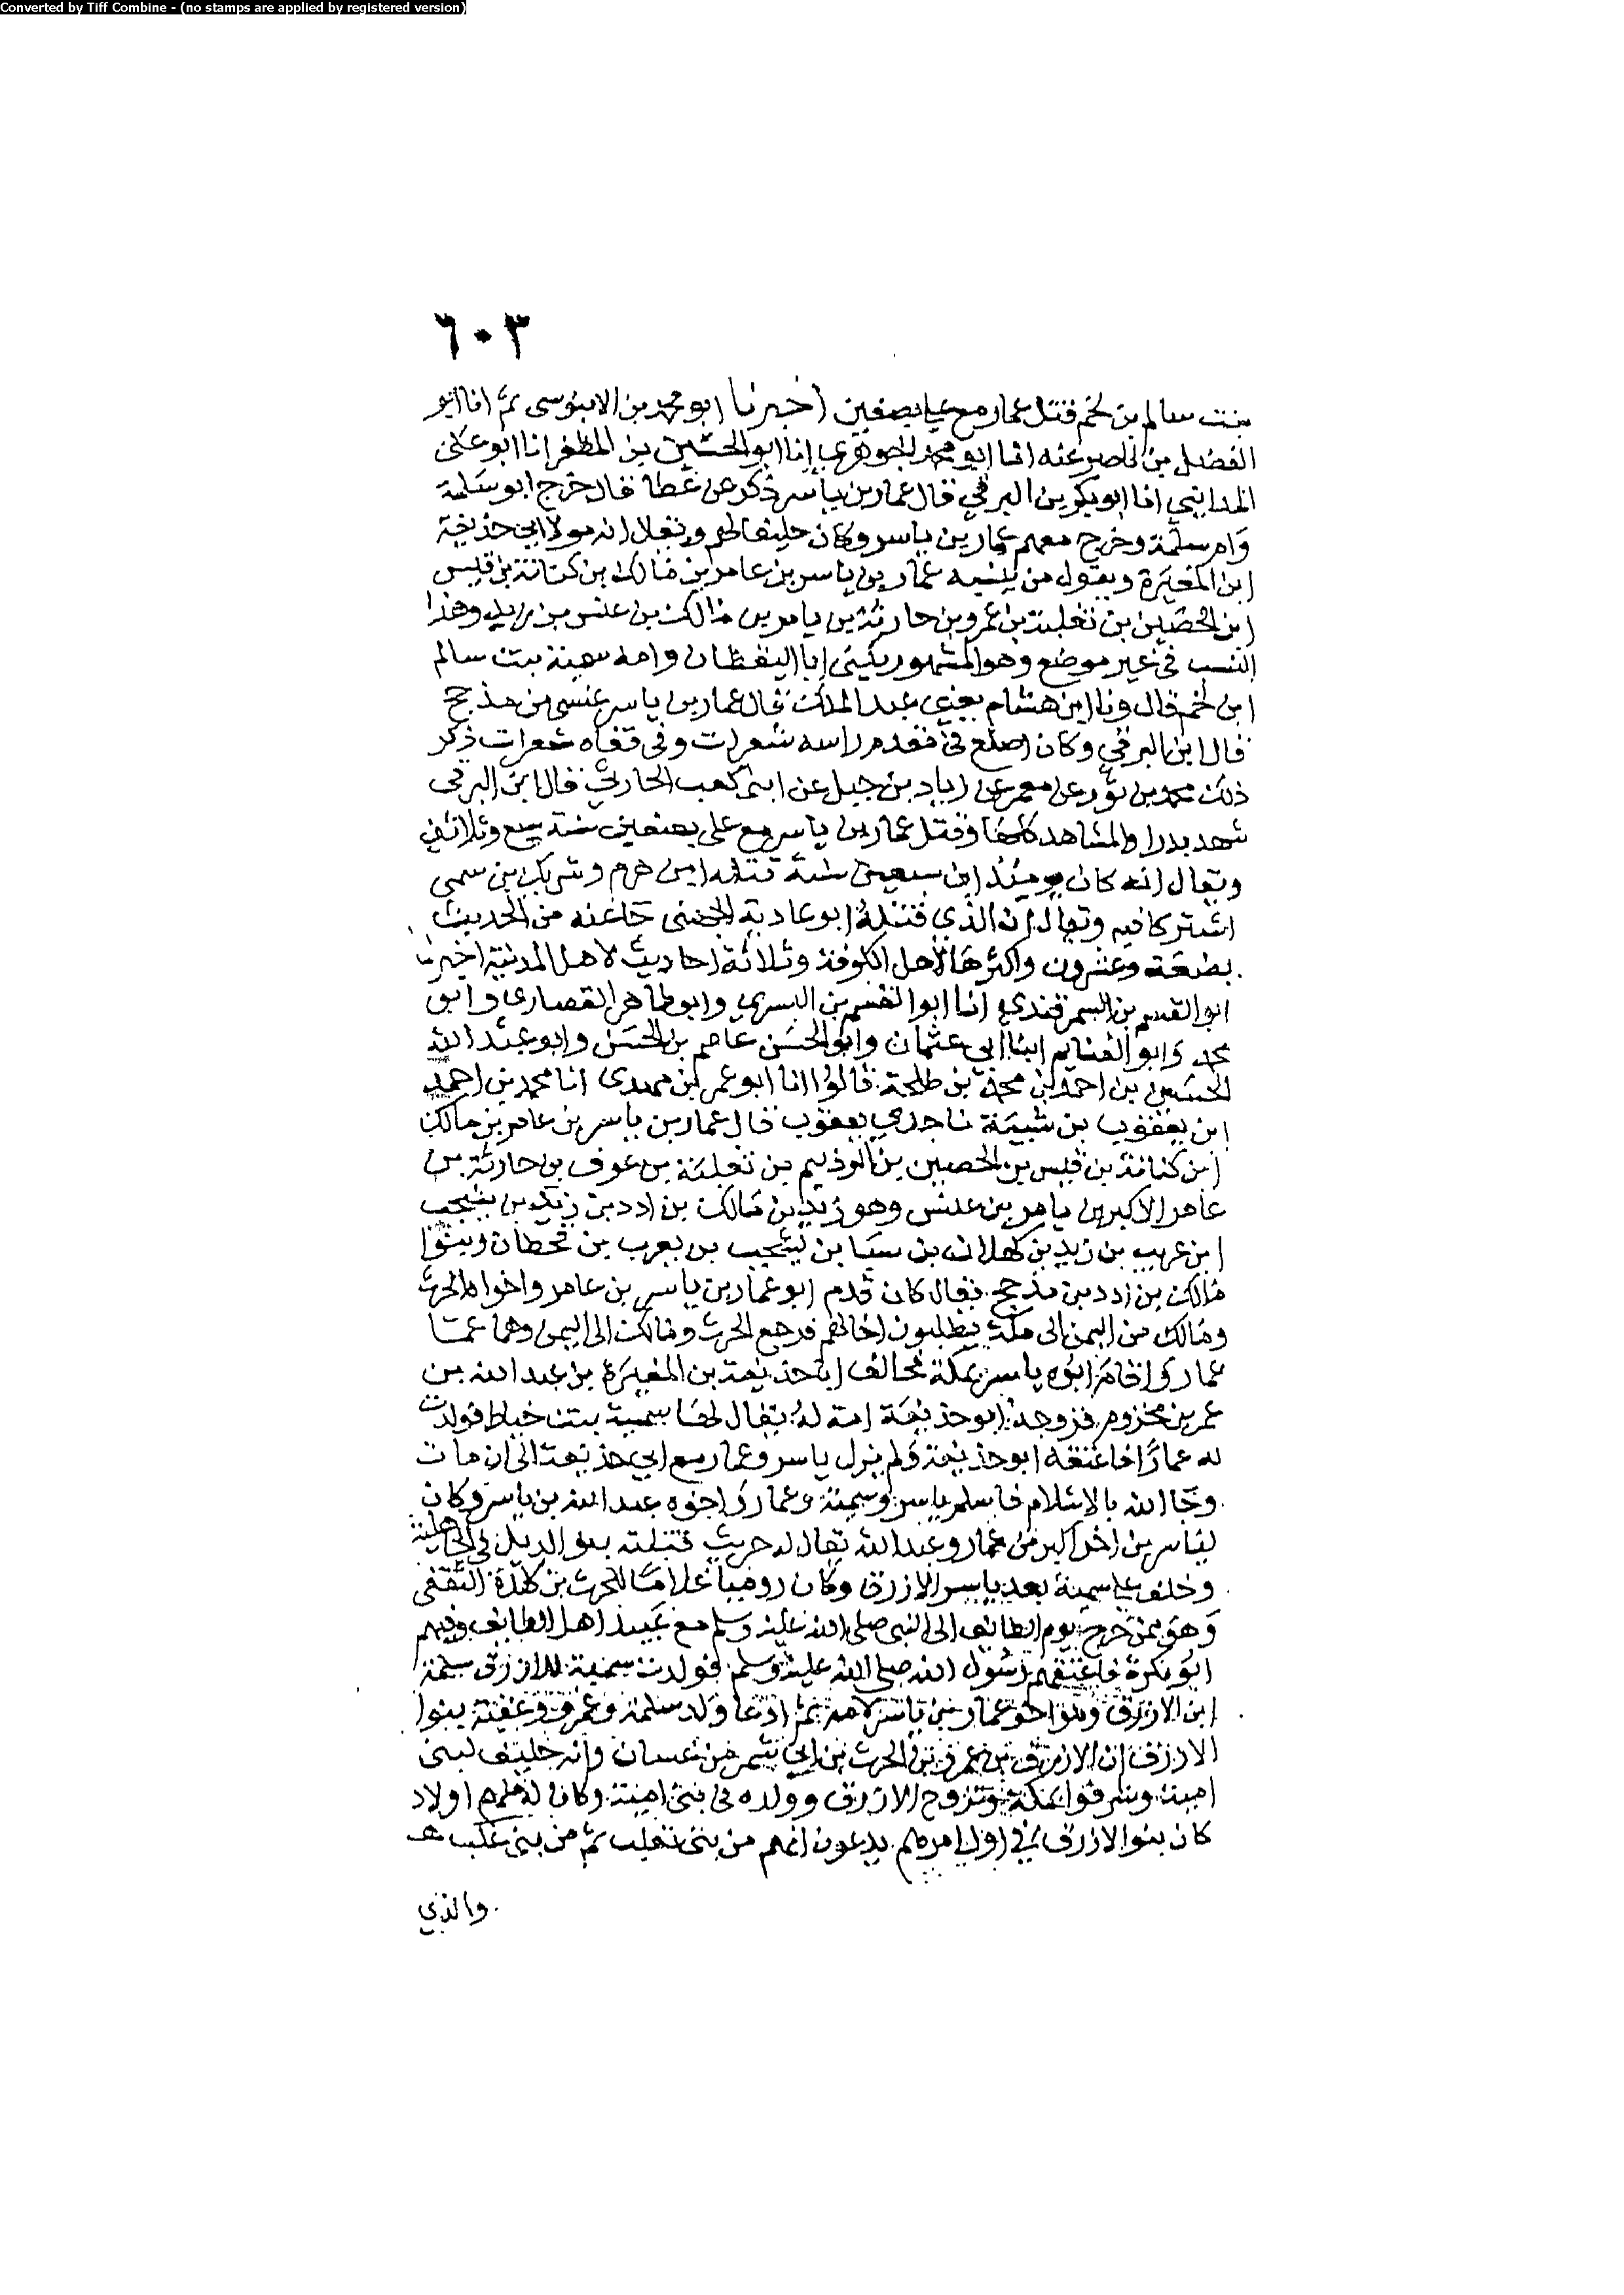 Converted by Tiff Combine - (no stamps are applied by registered version)
٦٠٣
بنت سالم بن لخم قتل عمار مع علي بصفين اخبرنا ابو محمد بن الابنوسى ثم انا ابو
الفضل بن ناصر عنه انا ابو محمد الجوهري انا ابو الحسين بن المظفر انا ابو على
المدايني انا ابو بكر بن البرقي قال عمار بن ياسر ذكر عن عطا قال خرج ابو سلمة
وام سلمة وخرج معهم عمار بن ياسر وكان حليفا لهم ويقال انه مولا ابي حذيفة
ابن المغيرة ويقول من ينسبه عمار بن ياسر بن عامر بن مالك بن كنانة بن قيس
ابن الحصين بن ثعلبة بن عمرو بن حارثة بن يام بن مالك بن عنس بن زيد وهذا
النسب في غير موضع وهو المشهور يكنى ابا اليقظان وامه سمية بنت سالم
ابن لخم قال ونا ابن هشام يعني عبد الملك قال عمار بن ياسر عنسي من مذحج
قال ابن البرقي وكان اصلع في مقدم راسه شعرات وفى قفاه شعرات ذكر
ذلك محمد بن ثور عن معمر عن زياد بن جبل عن ابي كعب الحارثي قال ابن البرقى
شهد بدرا والمشاهد كلها وقتل عمار بن ياسر مع على بصفين سنة سبع وثلاثين
ويقال انه كان يومئذ ابن سبعين سنة قتله ابن هرم وشريك بن سمى
اشتركا فيه ويقال ان الذي قتله ابو عادية الجهنى جا عنه من الحديث
بضعة وعشرون واكثرها لاهل الكوفة وثلاثة احاديث لاهل المدينة اخبرنا
ابو القسم بن السمرقندي انا ابو القسم بن البسري وابو طاهر القصارى وابو
محمد وابو الغنايم ابنا ابي عثمان وابو الحسن عاصم بن الحسن وابو عبد الله
الحسين بن احمد بن محمد بن طلحة قالوا انا ابو عمر بن مهدى انا محمد بن احمد
ابن يعقوب بن شيبة نا جدي يعقوب قال عمار بن ياسر بن عامر بن مالك
ابن كنانة بن قيس بن الحصين بن الوذيم بن ثعلبة بن عوف بن حارثة بن
عامر الاكبر بن يام بن عنس وهو زيد بن مالك بن ادد بن زيد بن يشجب
ابن عريب بن زيد بن كهلان بن سبا بن يشجب بن يعرب بن قحطان وبنوا
مالك بن ادد بن مذحج يقال كان قدم ابو عمار بن ياسر بن عامر واخواه الحرث
ومالك من اليمن الى مكة يطلبون اخا لهم فرجع الحرث ومالك الى اليمن وهما عما
عمار واقام ابوه ياسر بمكة فحالف ابا حذيفة بن المغيرة بن عبد الله بن
عمر بن مخزوم فزوجه ابو حذيفة امة له يقال لها سمية بنت خياط فولدت
له عمارا فاعتقه ابو حذيفة ولم يزل ياسر وعمار مع ابي حذيفة الى ان مات
وجا الله بالاسلام فاسلم ياسر وسمية وعمار واخوه عبد الله بن ياسر وكان
لياسر ابن اخر اكبر من عمار وعبد الله يقال له حريث قتلته بنو الديل في الجاهلية
وخلف على سمية بعد ياسر الازرق وكان روميا غلاما للحرث بن كلدة الثقفى
وهو ممن خرج يوم الطائف الى النبى صلى الله عليه وسلم مع عبيد اهل الطايف وفيهم
ابو بكرة فاعتقهم رسول الله صلى الله عليه وسلم فولدت سمية للازرق سلمة
ابن الازرق وهو اخو عمار بن ياسر لامه ثم ادعا ولد سلمة وعمر وعقبة بنوا
الازرق ان الازرق بن عمرو بن الحرث بن ابي شمر من غسان وانه حليف لبنى
امية وشرفوا بمكة وتزوج الازرق وولده فى بنى امية وكان له منهم اولاد
كان بنو الازرق في اول امرهم يدعون انهم من بنى تغلب ثم من بني عكب
والذي